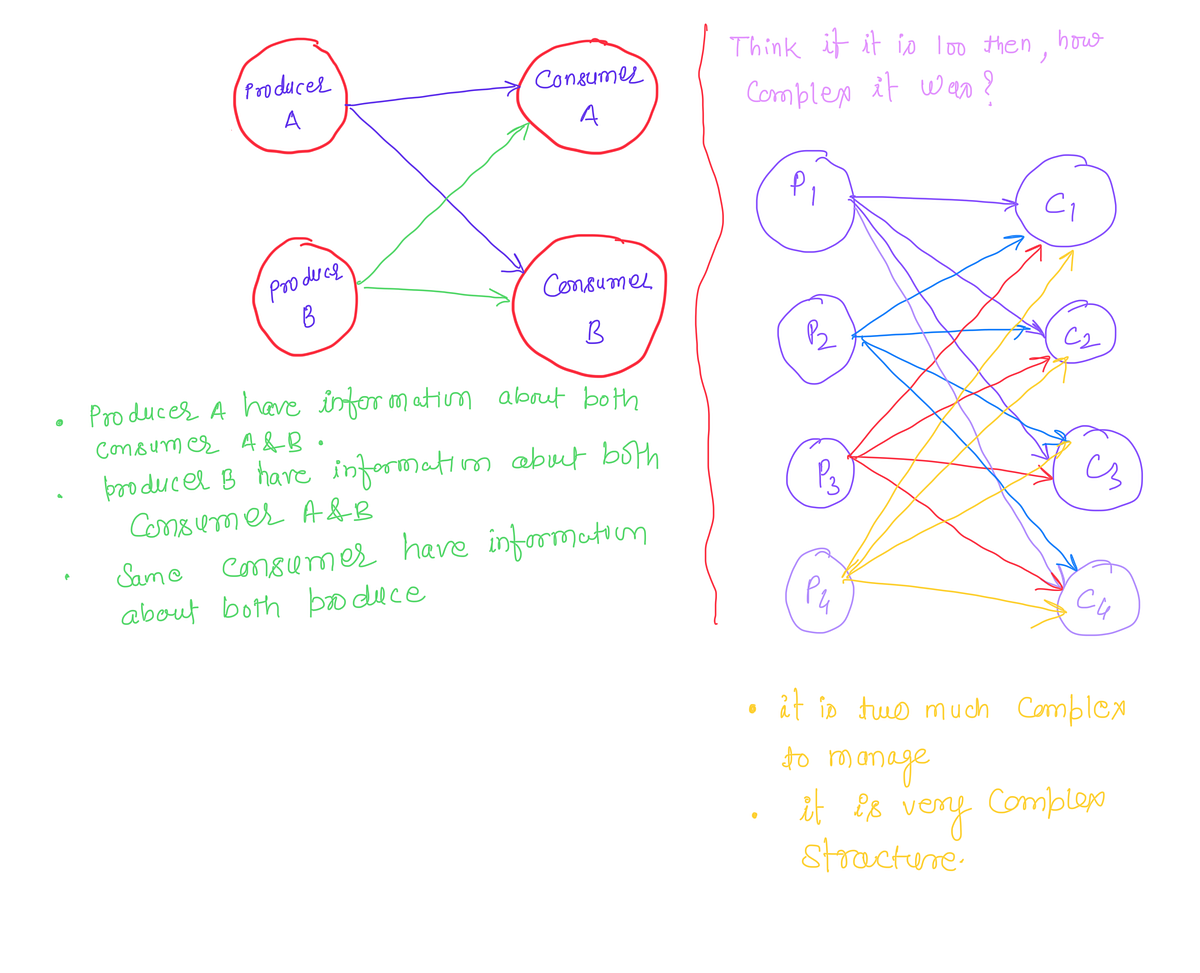 Producer
A
Consumer
A
Producer
B
Consumer
B
• Producer A have information about both
consumer A & B.
• producer B have information about both
Consumer A & B
• Same consumer have information
about both produce
Think if it is 100 then, how
Complex it was?
P1
C1
P2
C2
P3
C3
P4
C4
• it is two much Complex
to manage
• it is very Complex
Structure.